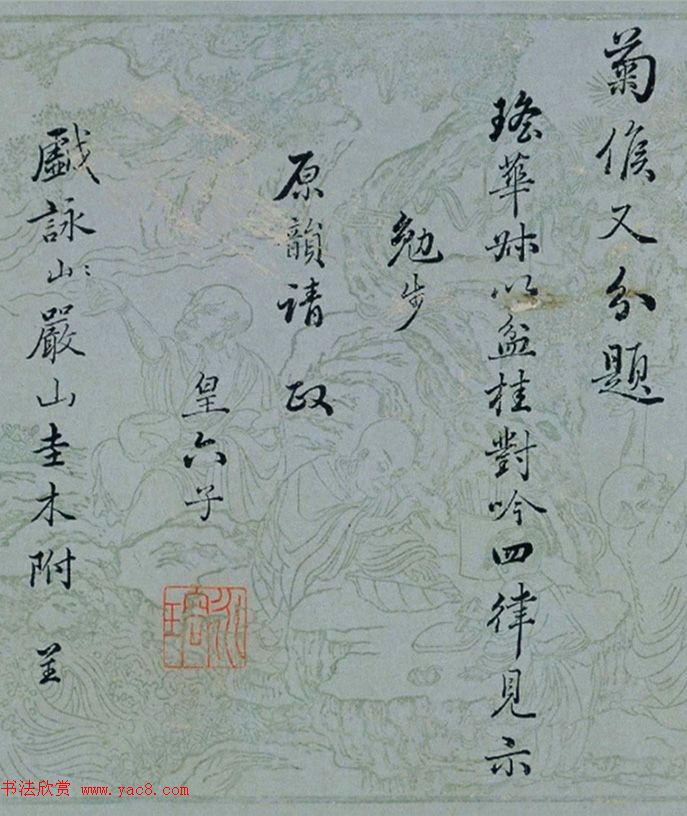 菊候又分題
瑤華叔以盆桂對吟四律見示
勉步
原韻請政
皇六子
永瑢
戲詠山〻嚴山圭木附呈
书法欣赏 www.yac8.com